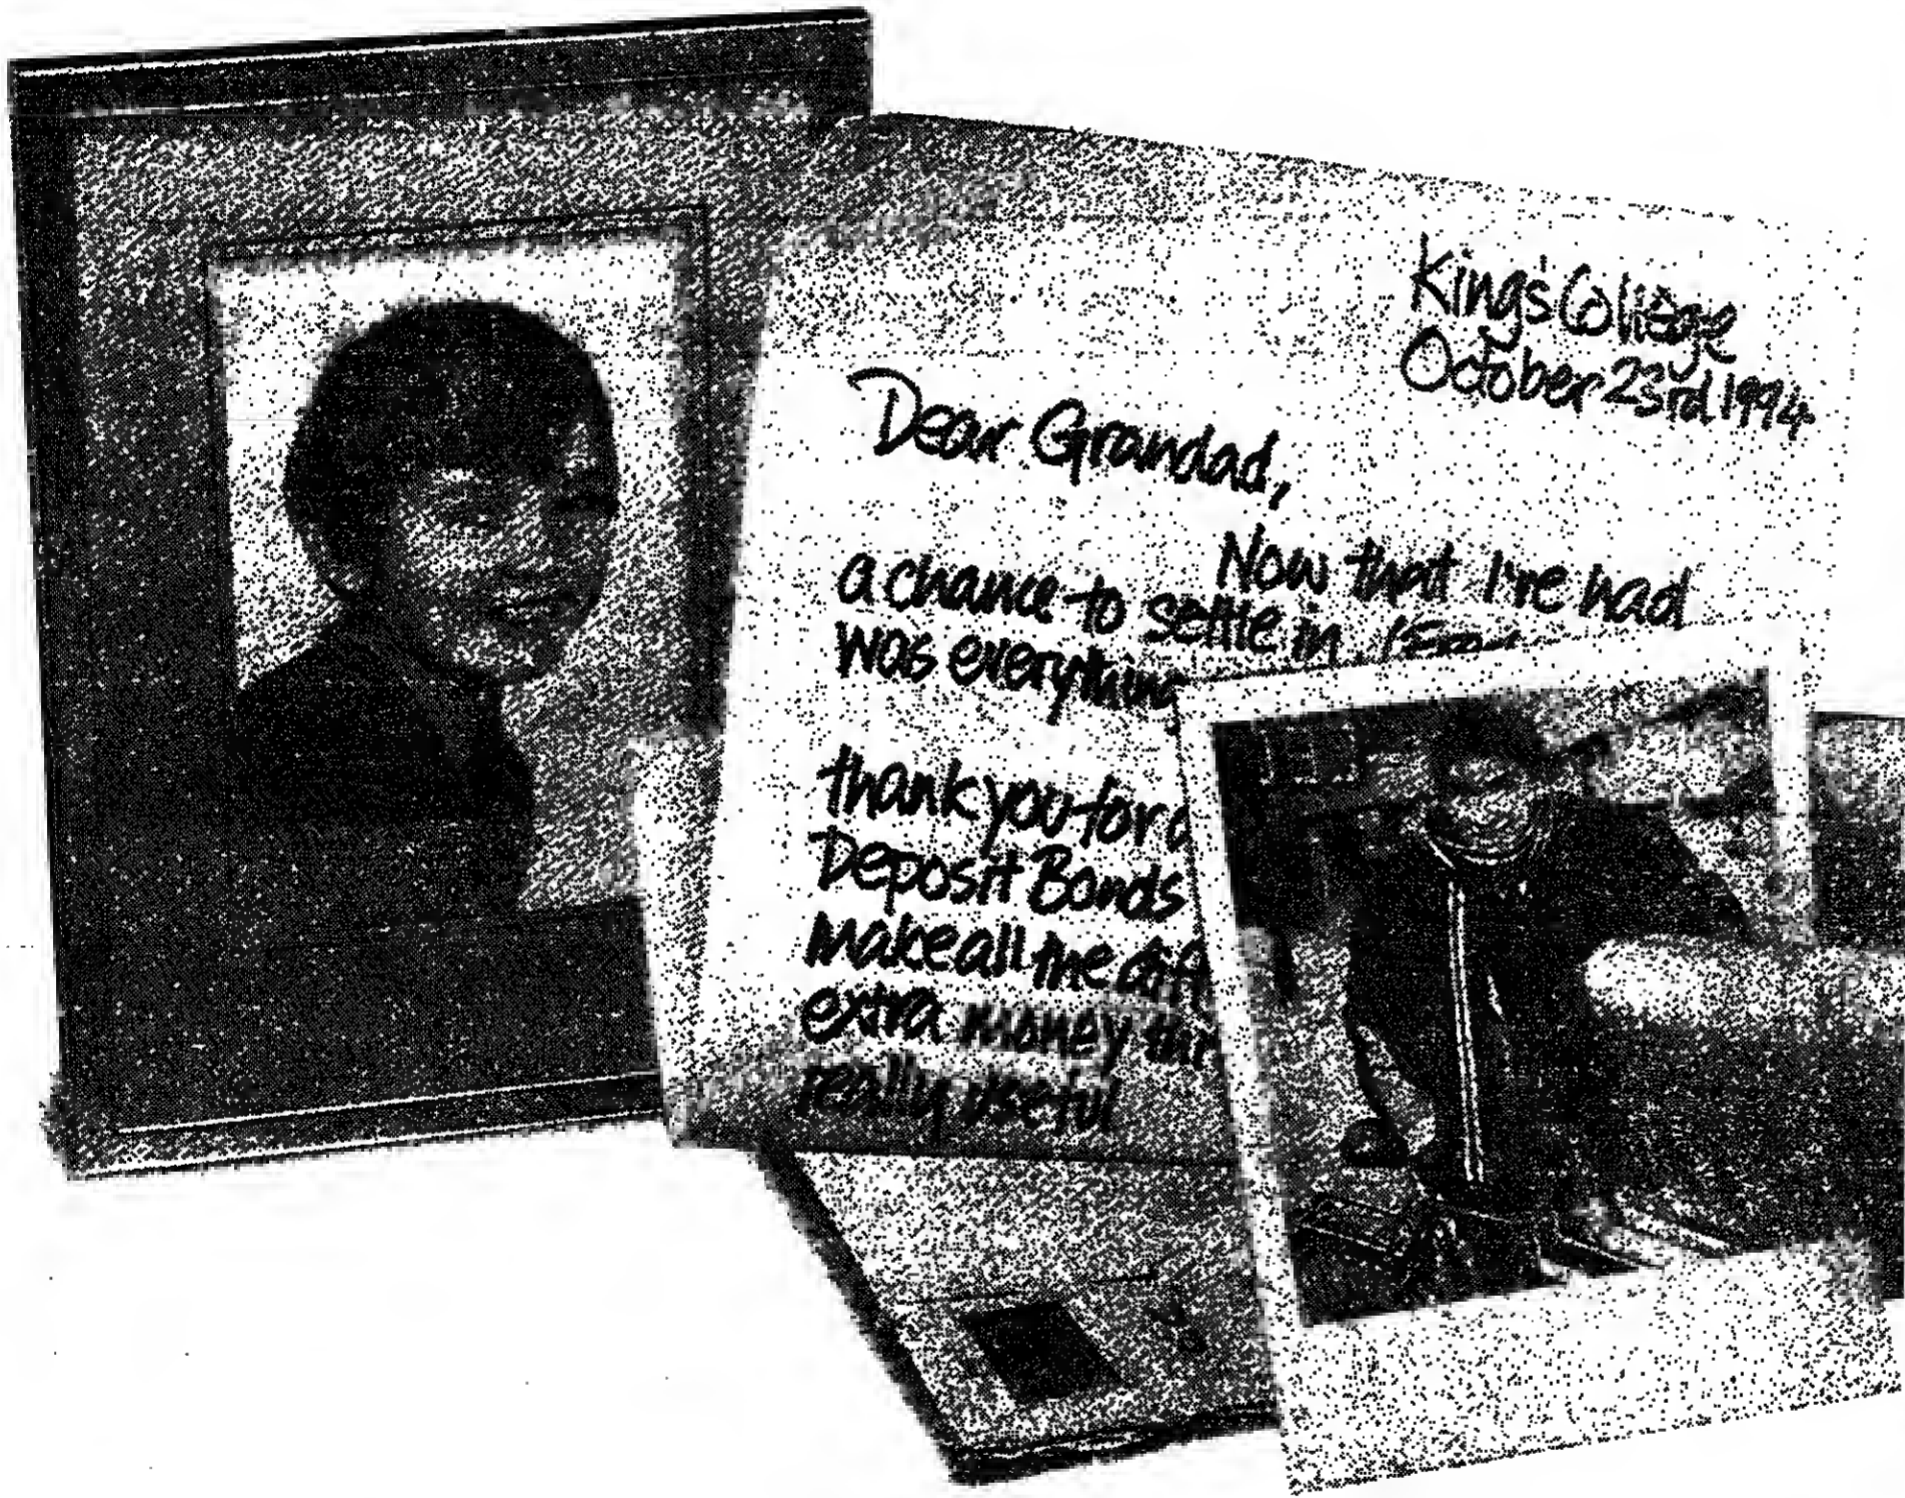 King's College
October 23rd 1994
Dear Grandad,
Now that I've had
a chance to settle in
was everything
thank you for
Deposit Bonds
make all the
extra money
really useful